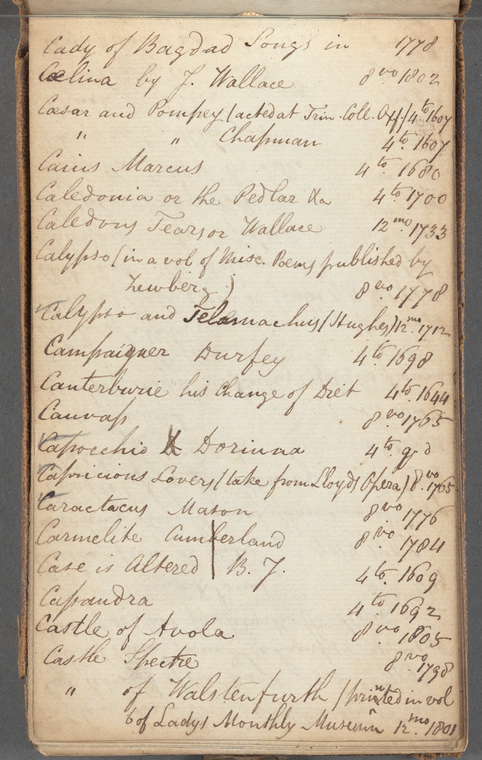 Cady of Bagdad Songs in 1778
Cœlina by J. Wallace 8vo 1802
Cæsar and Pompey (acted at Trin. Coll. Oxf) 4to 1607
" " Chapman 4to 1607
Cains Marcus 4to 1680
Caledonia or the Pedlar &a 4to 1700
Caledons Tears or Wallace 12mo 1733
Calypso (in a vol of Misc. Poems published by
Newbery) 8vo 1778
Calypso and Telemachus (Hughes) 12mo 1712
Campaigner Durfey 4to 1698
Canterburie his change of Diet 4to 1644
Canvass 8vo 1765
Capocchio & Dorinna 4to
Capricious Lovers (take from Lloyds Opera) 8vo 1765
Caractacus Mason 8vo 1776
Carmelite Cumberland 8vo 1784
Case is Altered B. J. 4to 1609
Cassandra 4to 1692
Castle of Avola 8vo 1805
Castle Spectre 8vo 1798
" of Walstenfurth (printed in vol
6 of Ladys Monthly Museum 12mo 1801